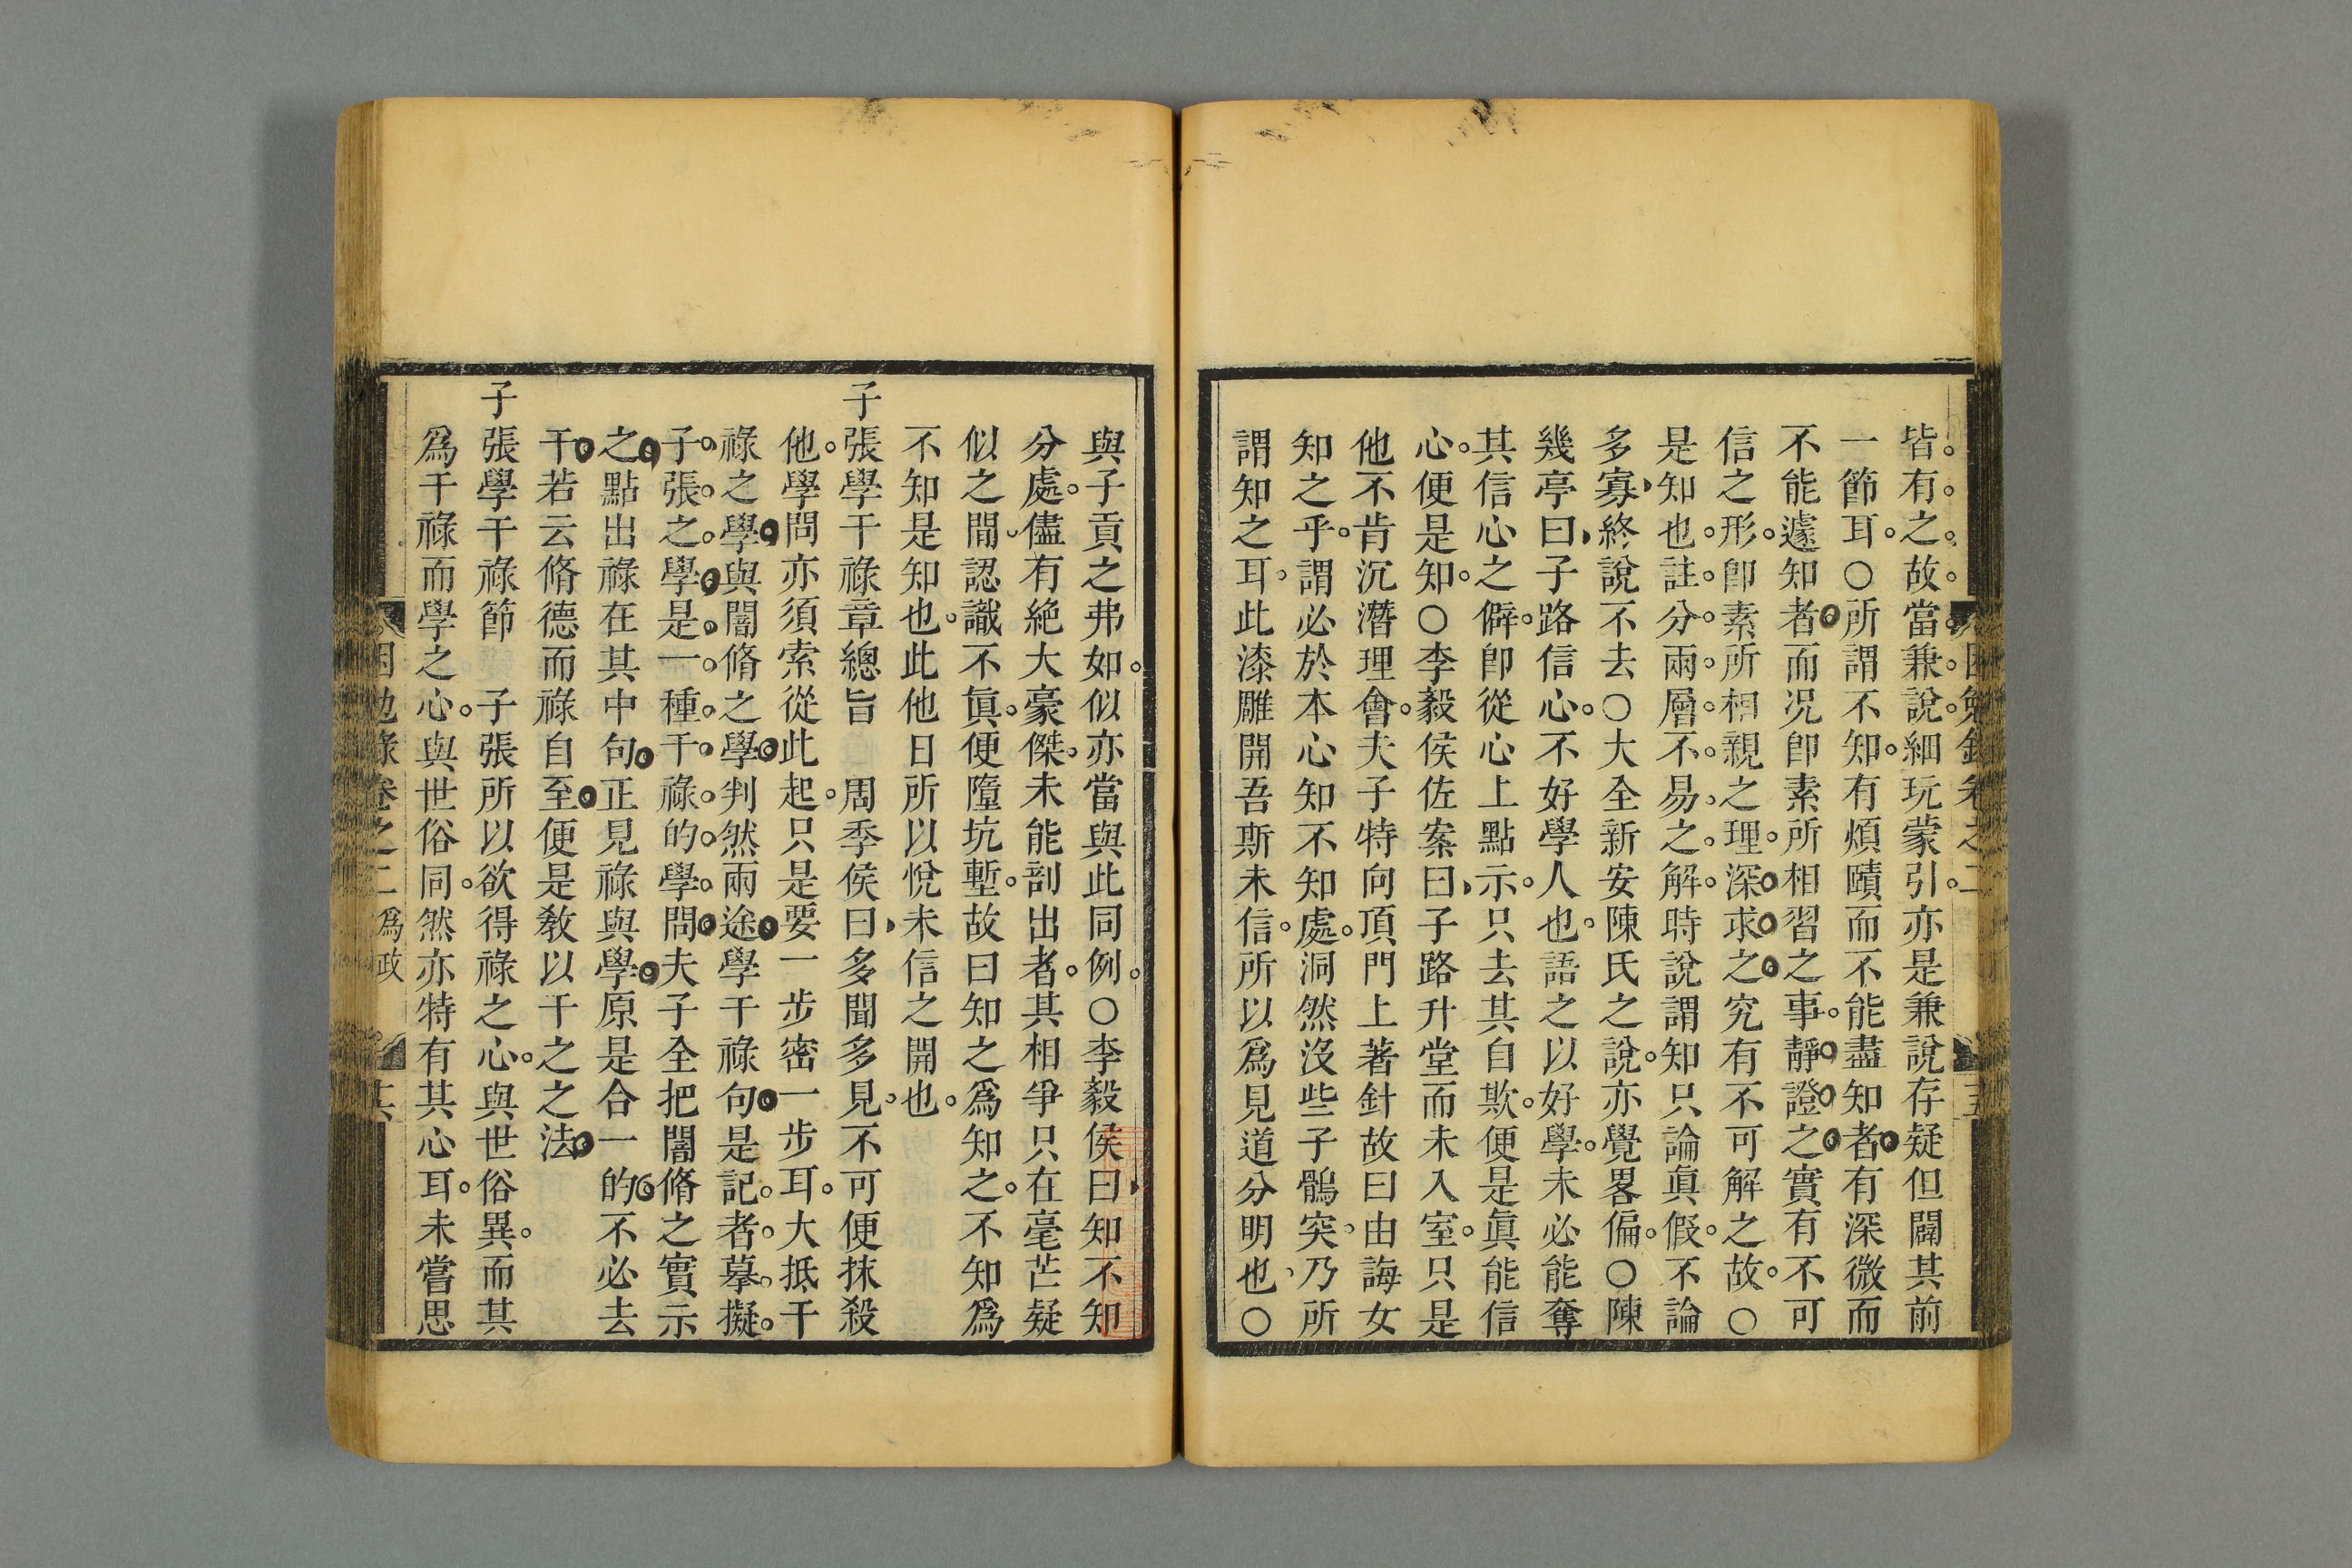 皆有之故當兼說細玩蒙引亦是兼說存疑但闢其前
一節耳○所謂不知有煩賾而不能盡知者有深微而
不能遽知者而况卽素所相習之事靜證之實有不可
信之形卽素所相親之理深求之究有不可解之故○
是知也註分兩層不易之解時說謂知只論眞假不論
多寡終說不去○大全新安陳氏之說亦覺畧偏○陳
幾亭曰子路信心不好學人也語之以好學未必能奪
其信心之僻卽從心上點示只去其自欺便是眞能信
心便是知○李毅侯佐案曰子路升堂而未入室只是
他不肯沉潛理會夫子特向頂門上著針故曰由誨女
知之乎謂必於本心知不知處洞然沒些子鶻突乃所
謂知之耳此漆雕開吾斯未信所以爲見道分明也○
與子貢之弗如似亦當與此同例○李毅侯曰知不知
分處儘有絶大豪傑未能剖出者其相爭只在毫芒疑
似之間認識不眞便墮坑塹故曰知之爲知之不知爲
不知是知也此他日所以悅未信之開也
子張學干祿章總旨　周季侯曰多聞多見不可便抹殺
他學問亦須索從此起只是要一步密一步耳大抵干
祿之學與闇脩之學判然兩途學干祿句是記者摹擬
子張之學是一種干祿的學問夫子全把闇脩之實示
之點出祿在其中句正見祿與學原是合一的不必去
干若云脩德而祿自至便是教以干之之法
子張學干祿節　子張所以欲得祿之心與世俗異而其
爲干祿而學之心與世俗同然亦特有其心耳未嘗思
困勉錄卷之二 爲政